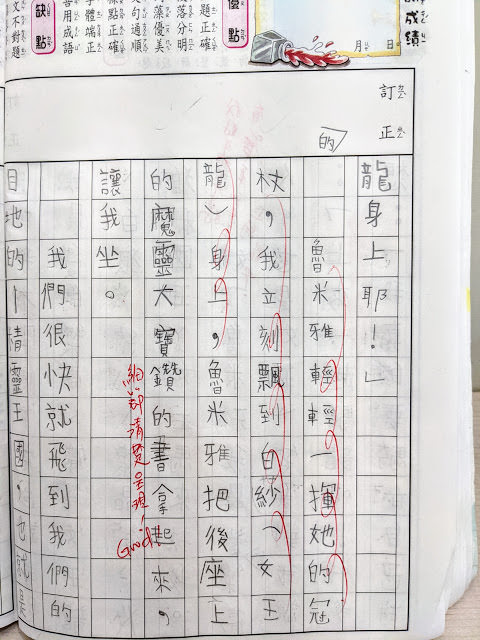 成績
月 日
優點
題正確
落分明
藻優美
句通順
標點正確
字體端正
善用成語
缺點
文不對題
訂正
的
龍身上耶！」
魯米雅輕輕一揮她的冠
杖，我立刻飄到白紗（女王
龍）身上，魯米雅把後座上
的魔靈大寶鑽的書拿起來，
細節都清楚呈現，Good!
讓我坐。
我們很快就飛到我們的
目地的—精靈王國，也就是